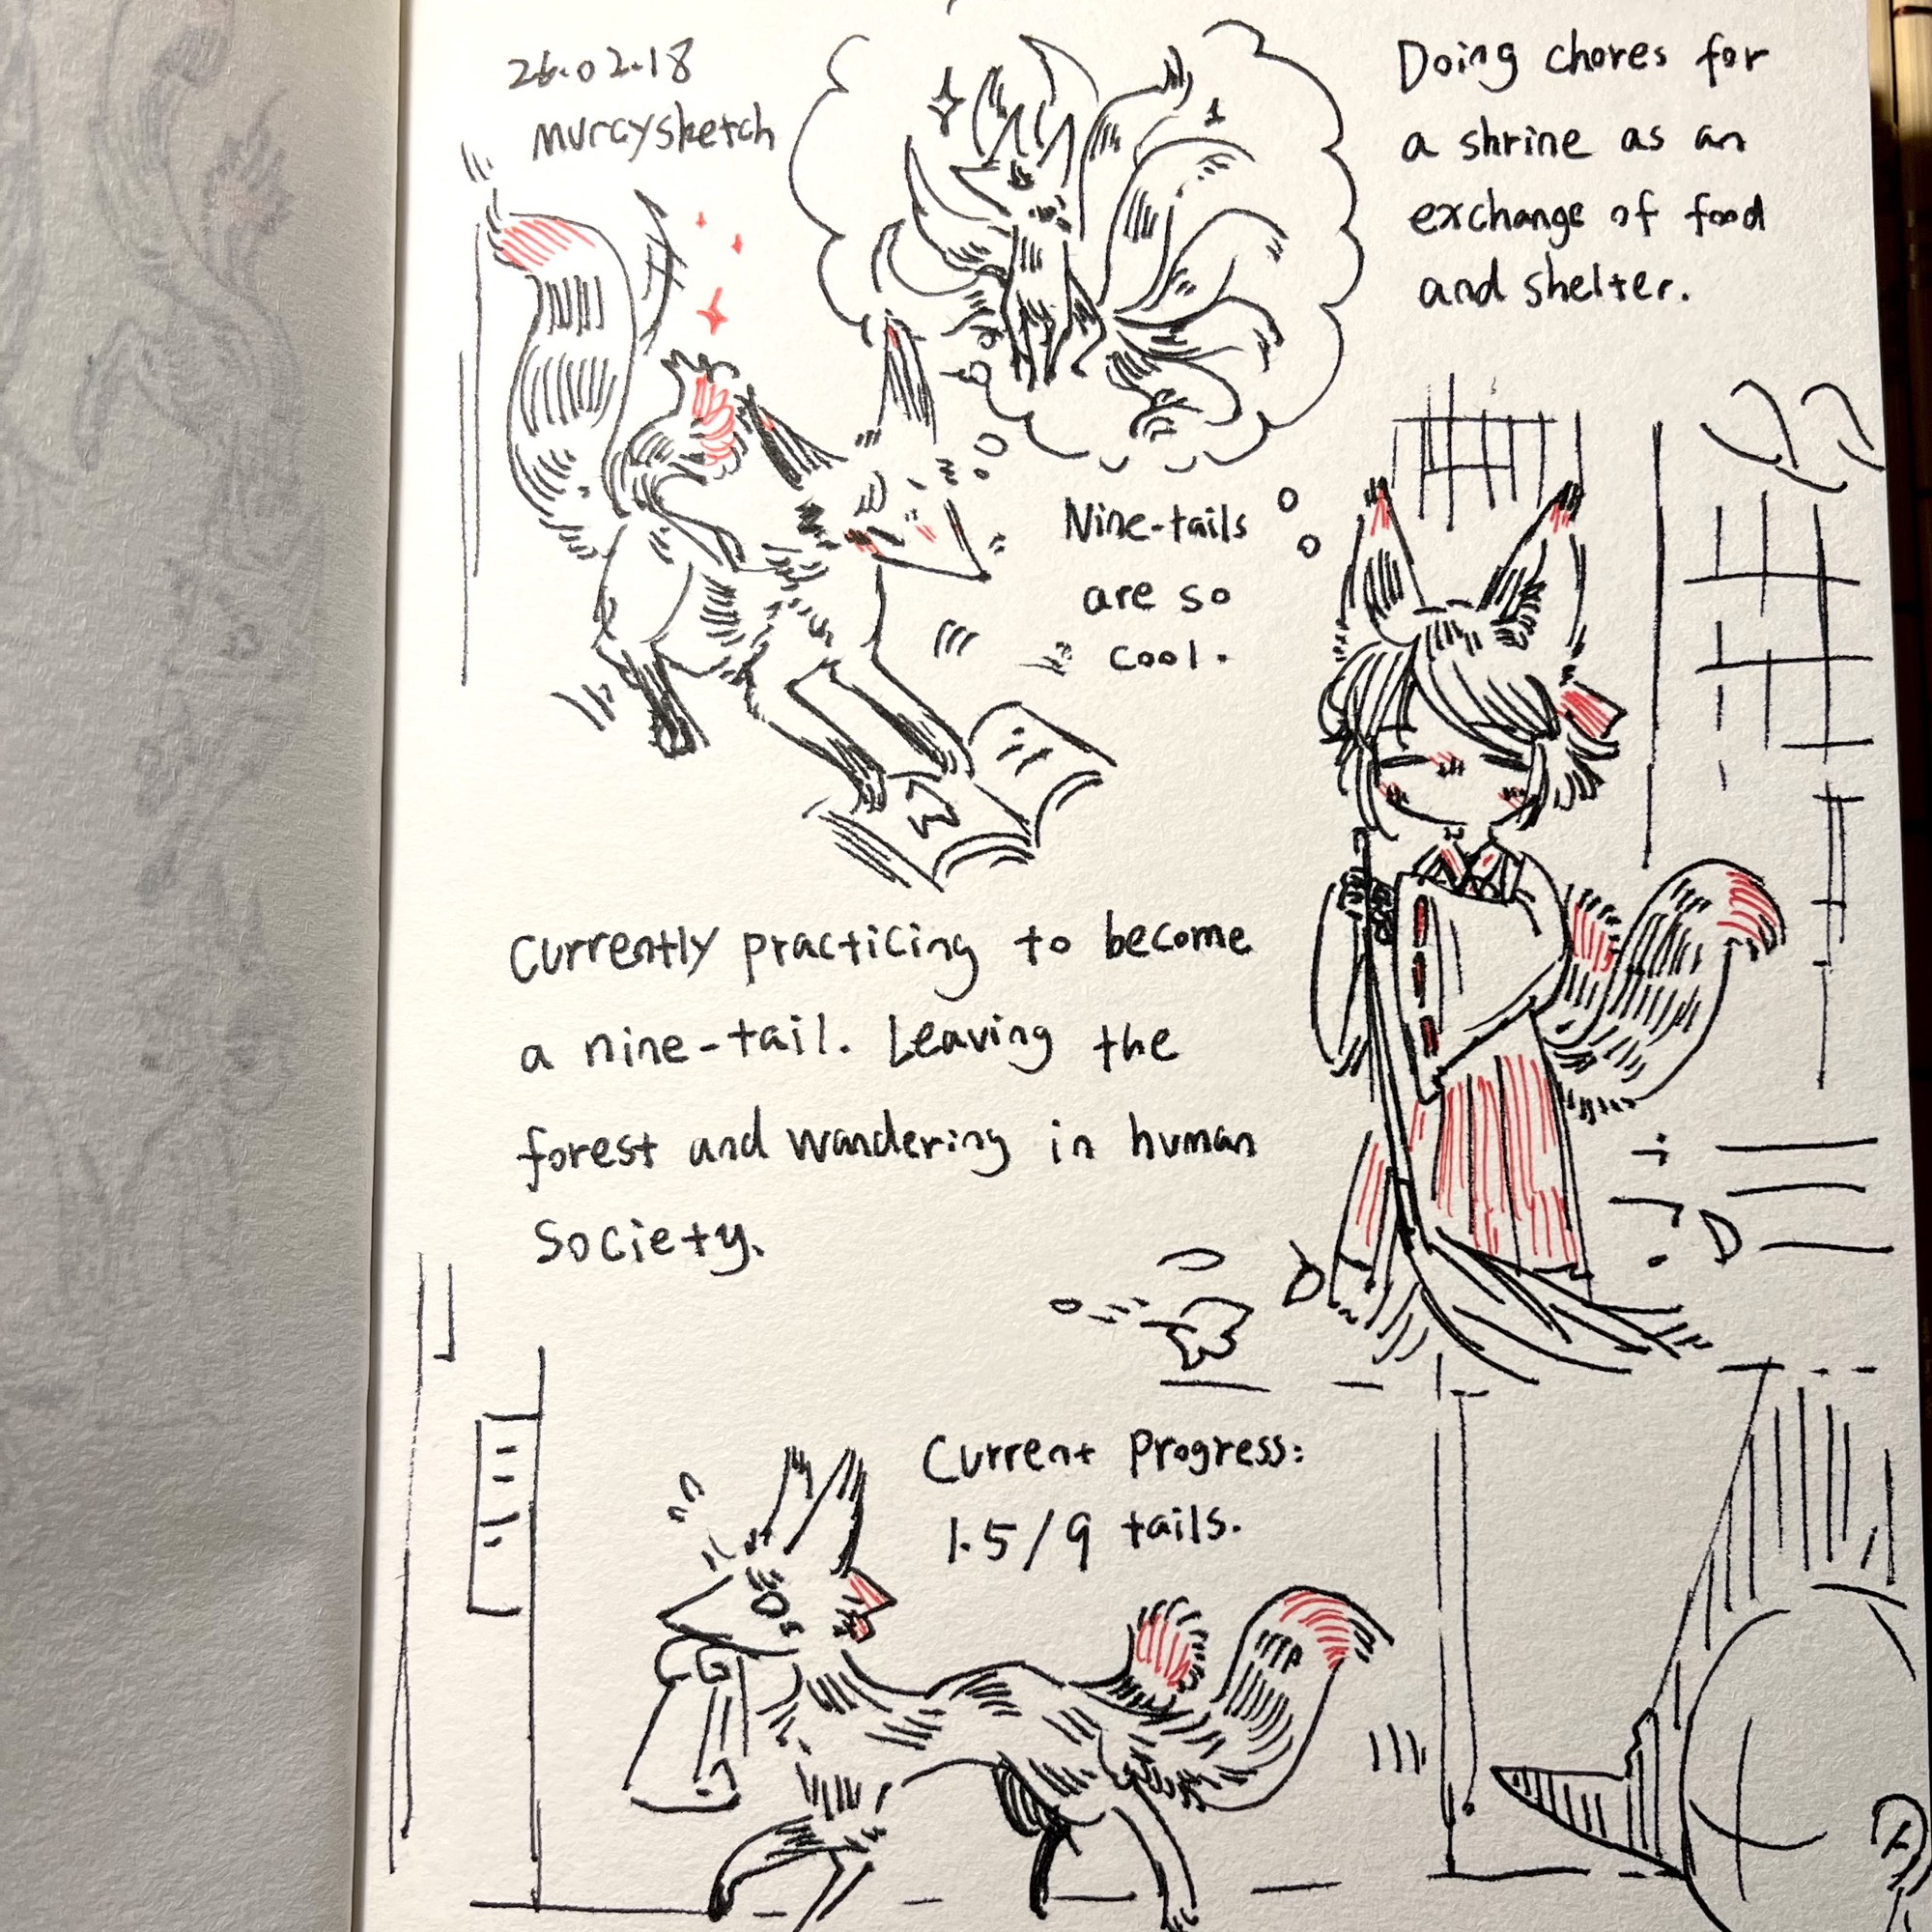 26.02.18
murcysketch
Doing chores for
a shrine as an
exchange of food
and shelter.
Nine-tails
are so
cool.
Currently practicing to become
a nine-tail. Leaving the
forest and wandering in human
society.
Current Progress:
1.5/9 tails.